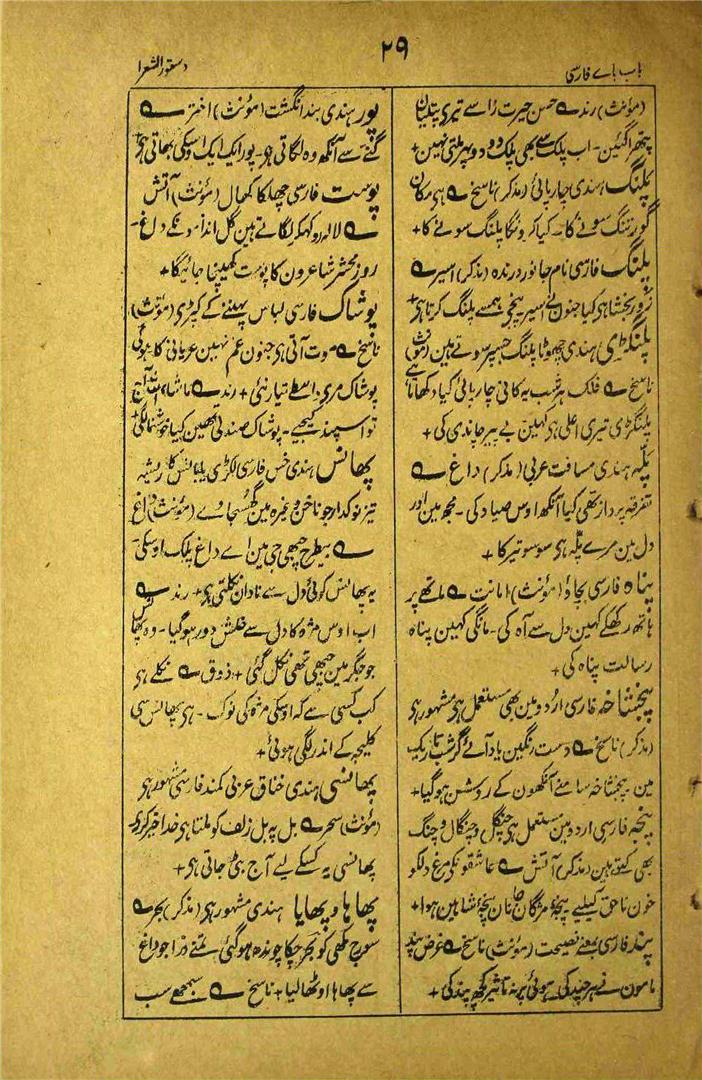 باب باے فارسی
۲۹
دستور الشعرا
(مؤنث) رند ؎ حسن حیرت زا سے تیری پتلیان
پتھرا گئین - اب پلک سے بھی پلک دو دو پہر ملتی نہین +
پلنگ ہندی چارپائی (مذکر) ناسخ ؎ ہی مکان
گور تنگ سونے کا - کیا کرونگا پلنگ سونے کا +
پلنگ فارسی نام جانور درندہ (مذکر) اسیر ؎
زور بخشا ہی کیا جنون نے اسیر - پنجہ ہمسے پلنگ کرتا ہی +
پلنگڑی ہندی چھوٹا پلنگ جسپر سوتے ہین (مؤنث)
ناسخ ؎ فلک ہر شب یہ کانی چارپائی کیا دکھاتا ہے
پلنگڑی تیری اعلی ہی کہین بے پیر چاندی کی +
پلہ ہندی مسافت عربی (مذکر) داغ ؎
تفرقہ پرداز تھی کیا آنکھ اوس صیاد کی - مجھ مین اور
دل مین مرے پلہ ہی سو سو تیر کا +
پناہ فارسی بچاؤ (مؤنث) امانت ؎ ماتھے پر
ہاتھ رکھکے کہین دل سے آہ کی - مانگی کہین پناہ
رسالت پناہ کی +
پنجشاخہ فارسی اردو مین بھی مستعمل ہی مشہور ہی
(مذکر) ناسخ ؎ دست رنگین یاد آئے گر شب تاریک
مین - پنجشاخہ سامنے آنکھون کے روشن ہو گیا +
پنجہ فارسی اردو مین مستعمل ہی چنگل و چنگال و چنگ
بھی کہتے ہین (مذکر) آتش ؎ عاشقو نکی مرغ دلکو
خون ناحق کیلیے - پنجۂ مژگان جانان پنجۂ شاہین ہوا +
پند فارسی بمعنے نصیحت (مؤنث) ناسخ ؎ غرض پند
مامون نے ہر چند کی - ہوئی پر نہ تاثیر کچھ پند کی +
پور ہندی بند انگشت (مؤنث) اختر ؎
گنے سے آنکھ وہ لگاتی ہی - پور ایک ایک اوسکی بھاتی ہی
پوست فارسی چھلکا کھال (مؤنث) آتش
؎ لالہ رو کہکر لگاتے ہین گل اندامونکے داغ -
روز محشر شاعرون کا پوست کھینچا جائیگا +
پوشاک فارسی لباس پہننے کے کپڑی (مؤنث)
ناسخ ؎ موت آتی ہی جنون غم نہین عریانی کا - ہوئی
پوشاک مری واسطے تیار نئی + رند ؎ ماشاء اللہ آج
تو اسپند کیجیے - پوشاک صندلی تمھین کیا خوشنما لگی +
پھانس ہندی خس فارسی لکڑی یا بانس کا ریشہ
تیز نوکدار جو ناخن وغیرہ مین گھس جاوے (مؤنث) داغ
؎ بیطرح چبھی جی مین اے داغ پلک اوسکی -
یہ پھانس کوئی دل سے نادان نکلتی ہی + رند ؎
اب اوس مژہ کا دل سے خلش دور ہو گیا - وہ پھانس
جو جگر مین چبھی تھی نکل گئی + ذوق ؎ نکلے ہی
کب کسی سے کہ اوسکی مژہ کی نوک - ہی پھانس سی
کلیجہ کے اندر لگی ہوئی +
پھانسی ہندی خناق عربی کمند فارسی مشہور ہی
(مؤنث) سحر ؎ بل پہ بل زلف کو ملتا ہی خدا خیر کری -
پھانسی یہ کسکے لیے آج بٹی جاتی ہی +
پھاہا و پھایا ہندی مشہور ہی (مذکر) بحر ؎
سورج مکھی کو بحر چکا چوندھ ہو گئی - تمنے ذرا جو داغ
سے پھاہا اوٹھا لیا + ناسخ ؎ سمجھے سب